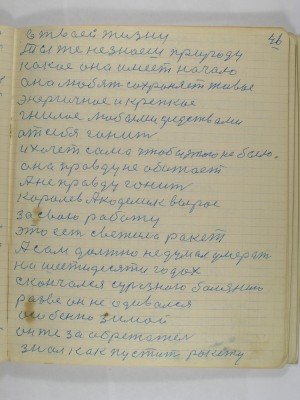 46
в тваей жизни
Ты же незнаеш природу
какое она имеет начало
она любят сохраняет живое
энергичное и крепкое
гнилое любыми средствами
от себя гонит
и хочет сама чтобы этого не было.
она правду не обижает
А неправду гонит
Королев Академик вырос
за свою работу
это есть светила ракет
А сам должно недумал умерат
на шестидесяти годах
скончался
разве он не одивался
особенно зимой
он же за обретател
знал как пустить ракету